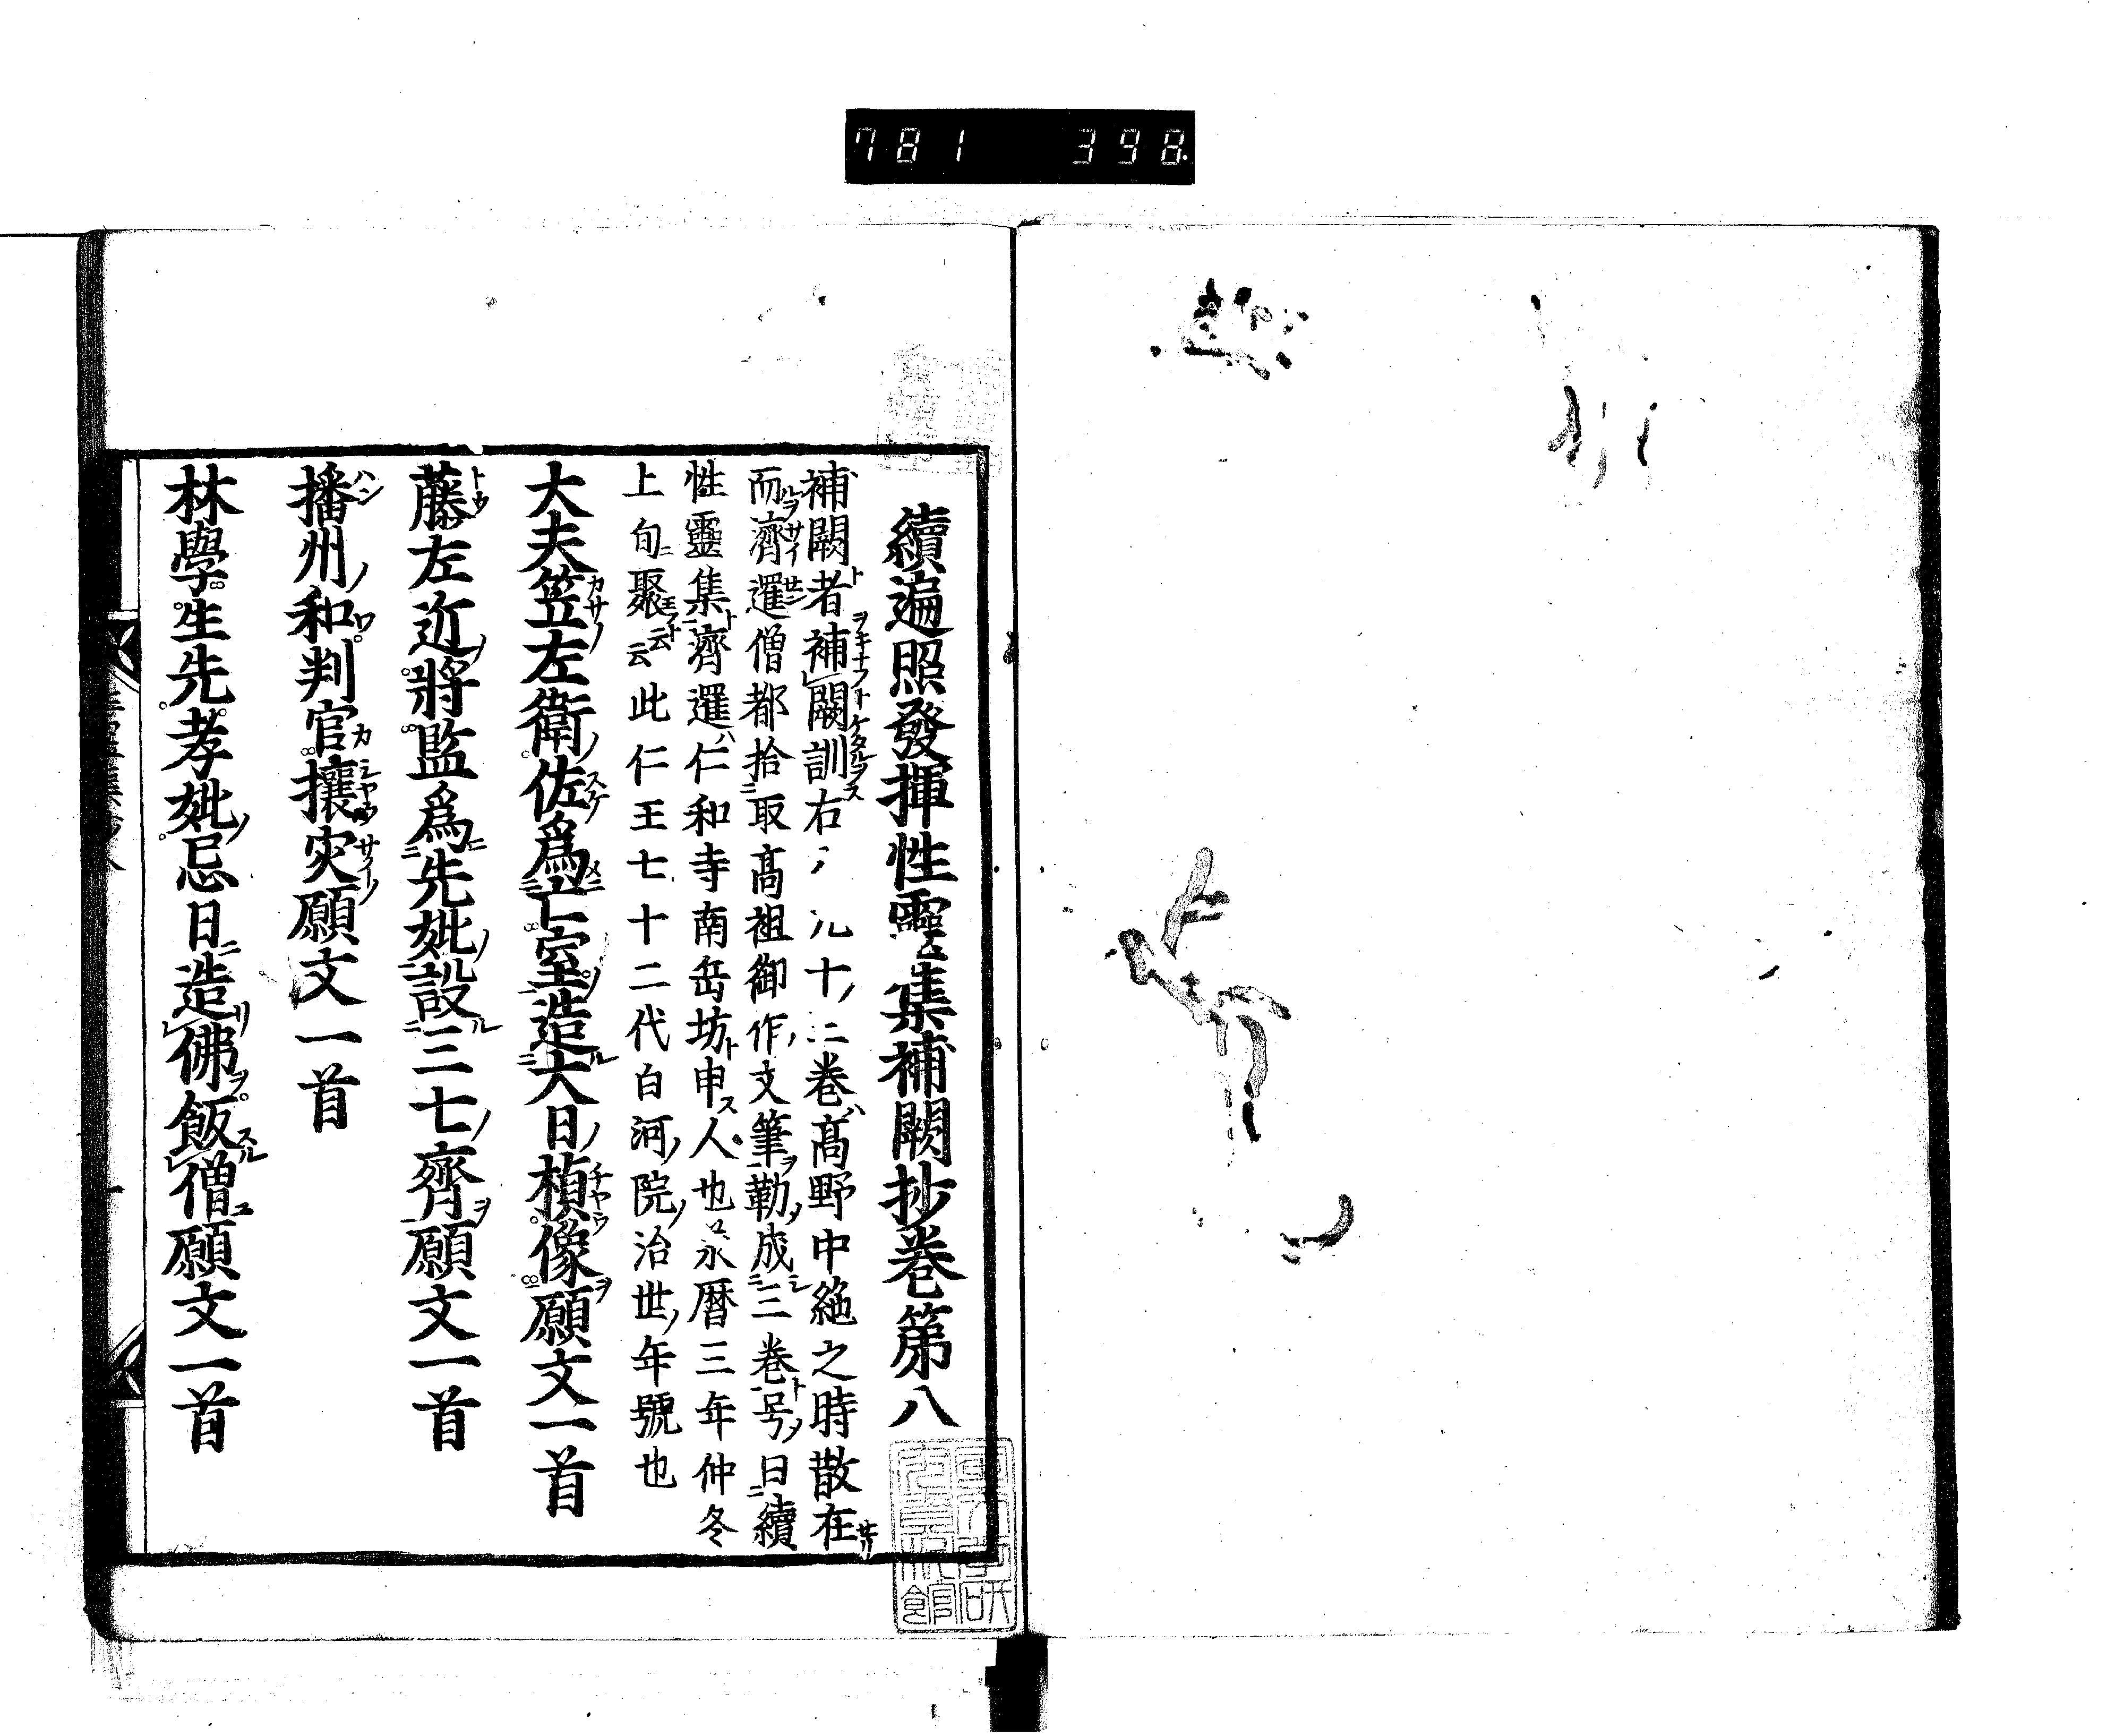 781 398
續遍照發揮性靈集補闕抄卷第八
補闕者補闕訓右十二卷高野中絶之時散在
而濟暹僧都拾取髙祖御作文筆勒成三卷号曰續
性靈集濟暹仁和寺南岳坊申人也永暦三年仲冬
上旬聚云云此仁王七十二代白河院治世年號也
大夫笠左衛佐爲亡室造大日楨像願文一首
藤左近將監爲先妣設三七齊願文一首
播州和判官攘灾願文一首
林學生先考妣忌日造佛飯僧願文一首